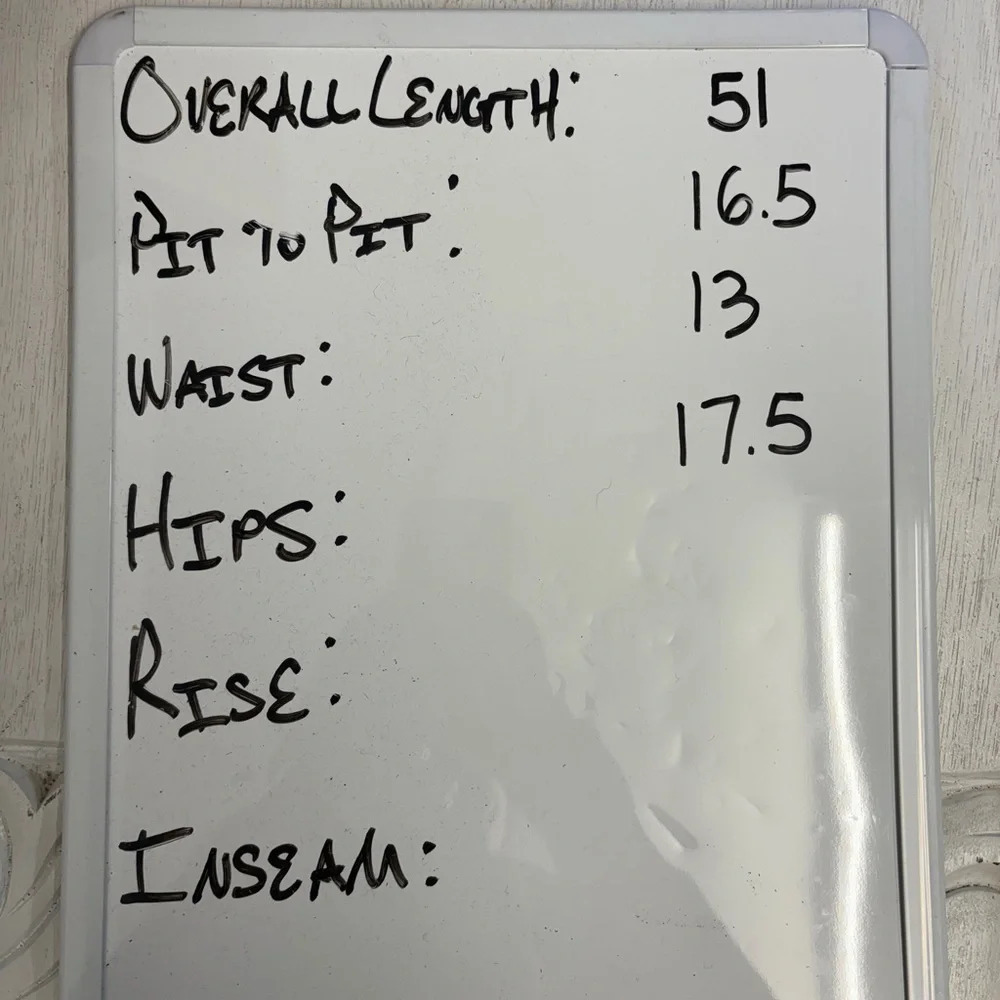 OVERALL LENGTH: 51
PIT TO PIT: 16.5
WAIST: 13
HIPS: 17.5
RISE:
INSEAM: